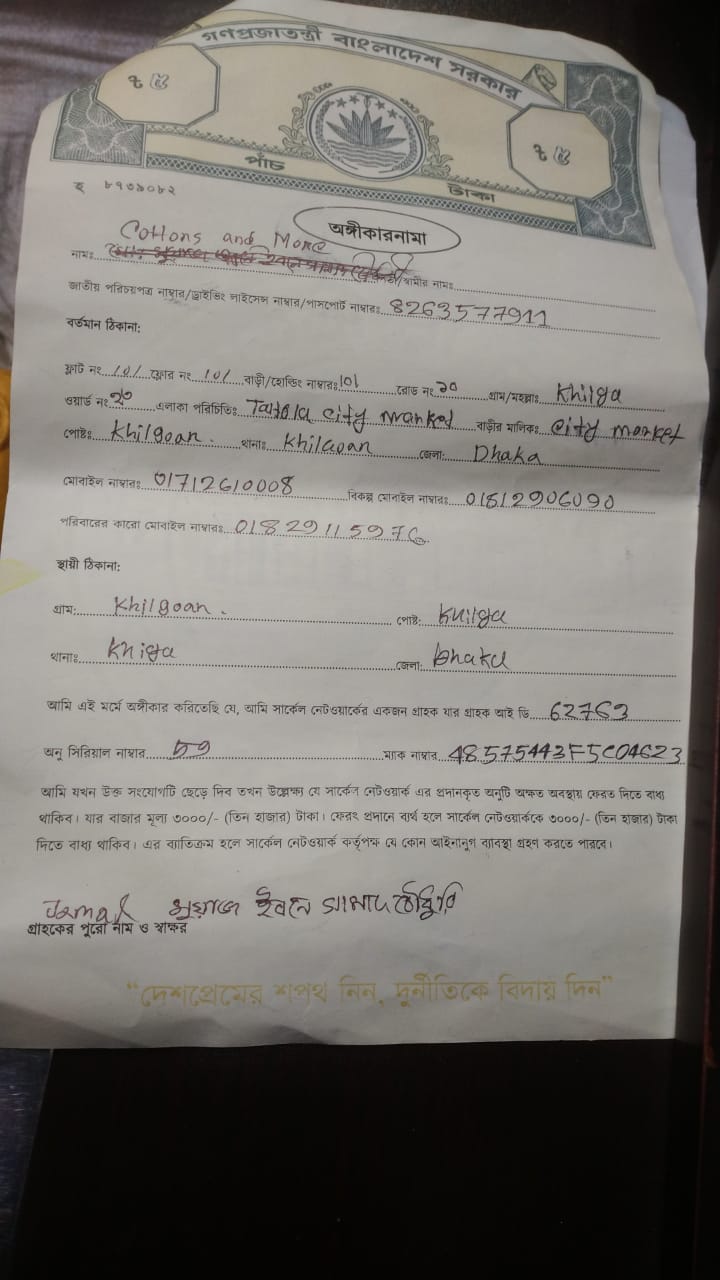 গণপ্রজাতন্ত্রী বাংলাদেশ সরকার
৳ ৫ ৳ ৫
পাঁচ টাকা
হ ৮৭৩৯০৮২
অঙ্গীকারনামা
Cottons and More
নামঃ স্বামীর নামঃ
জাতীয় পরিচয়পত্র নাম্বার/ড্রাইভিং লাইসেন্স নাম্বার/পাসপোর্ট নাম্বারঃ 8263577911
বর্তমান ঠিকানা:
ফ্লাট নং 101 ফ্লোর নং 101 বাড়ী/হোল্ডিং নাম্বারঃ 101 রোড নং ২০ গ্রাম/মহল্লাঃ Khilga
ওয়ার্ড নং ২০ এলাকা পরিচিতিঃ city market বাড়ীর মালিকঃ city market
পোষ্টঃ Khilgoan. থানাঃ Khilgoan জেলা: Dhaka
মোবাইল নাম্বারঃ 01712610008 বিকল্প মোবাইল নাম্বারঃ 01812906090
পরিবারের কারো মোবাইল নাম্বারঃ
স্থায়ী ঠিকানা:
গ্রাম: Khilgoan. পোষ্ট: Khilga
থানাঃ Khiga জেলা: Dhaka
আমি এই মর্মে অঙ্গীকার করিতেছি যে, আমি সার্কেল নেটওয়ার্কের একজন গ্রাহক যার গ্রাহক আই ডি 62763
অনু সিরিয়াল নাম্বার ম্যাক নাম্বার 48575443F5C04623
আমি যখন উক্ত সংযোগটি ছেড়ে দিব তখন উল্লেক্ষ্য যে সার্কেল নেটওয়ার্ক এর প্রদানকৃত অনুটি অক্ষত অবস্থায় ফেরত দিতে বাধ্য
থাকিব। যার বাজার মূল্য ৩০০০/- (তিন হাজার) টাকা। ফেরৎ প্রদানে ব্যর্থ হলে সার্কেল নেটওয়ার্ককে ৩০০০/- (তিন হাজার) টাকা
দিতে বাধ্য থাকিব। এর ব্যতিক্রম হলে সার্কেল নেটওয়ার্ক কর্তৃপক্ষ যে কোন আইনানুগ ব্যবস্থা গ্রহণ করতে পারবে।
Jamal ইবনে সামাদ চৌধুরি
গ্রাহকের পুরো নাম ও স্বাক্ষর
“দেশপ্রেমের শপথ নিন, দুর্নীতিকে বিদায় দিন”